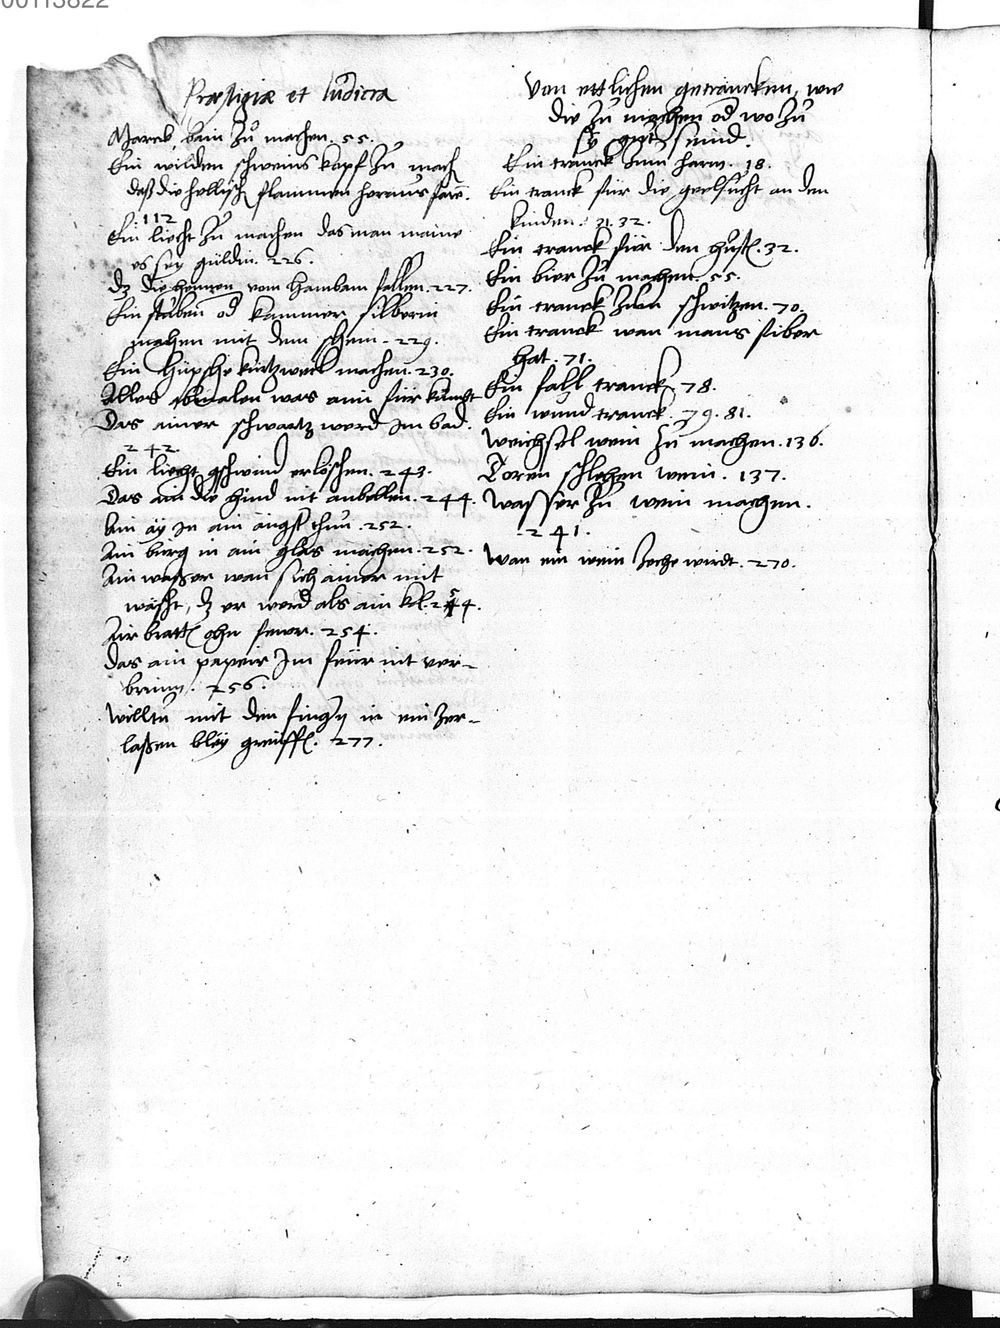 00113822
Præstigiæ et ludicra
Marck bain zů machen. 55.
Ein wilden schweins kopf zů mach
daß die hellisch flammen heraus fare.
112
Ein liecht zů machen das man maine
es sey gulden. 226.
dz die hennen vom hanbam fallen. 227.
Ein stuben od kammer silberin
machen mit dem schein. 229.
Ein hüpsche kurtzweil machen. 230.
Alles abmalen was aim für kumbt
Das ainer schwartz werd im bad.
242.
Ein liecht gschwind erlöschen. 243.
Das ain die hind nit anbellen. 244.
Ain ay in ain angst thun. 252.
Ain berg in ain glas machen. 252.
Ain wasser wan sich ainer mit
wäscht, dz er werd als ain kl. 254.
Air bratt ohn fewr. 254.
Das ain papeir im feür nit ver-
brinn. 256.
Willtu mit den fingern in ein zer-
laßen bley greiff. 277.
Von ettlichen getrancken, wie
die zů machen od wo zů
sy gut seind.
Ein tranck zum harn. 18.
Ein tranck für die geelsucht an den
kinden. 31. 32.
Ein tranck für den hust. 32.
Ein bier zů machen. 55.
Ein tranck zum schwitzen. 70.
Ein tranck wan mans fiber
hat. 71.
Ein fall tranck 78.
Ein wund tranck. 79. 81.
Weichsel wein zů machen. 136.
Doren schlehen wein. 137.
Wasser zů wein machen.
241.
Wan ein wein zeche wirdt. 270.